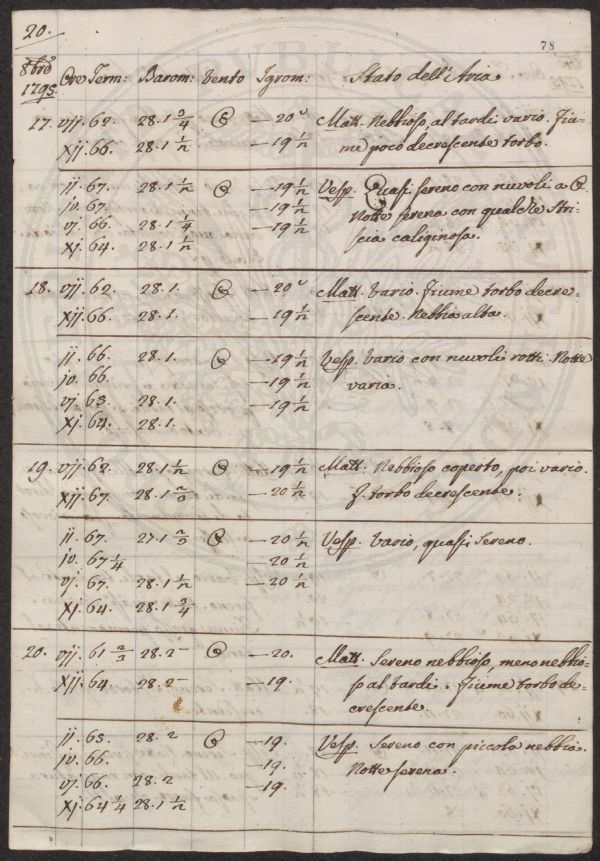 20.
78
8bre
1795. Ore Term: Barom: Vento Igrom: Stato dell'Aria
17. vij. 62. 28.1 3/4 @ —20 Matt. Nebbioso, al tardi vario. Fiu-
xij. 66. 28.1 1/2 —19 1/2 me poco decrescente torbo.
ij. 67. 28.1 1/2 @ —19 1/2 Vesp. Quasi sereno con nuvoli a @.
iv. 67. —19 1/2 Notte serena con qualche stri-
vj. 66. 28.1 1/4 —19 1/2 scia caliginosa.
xj. 64. 28.1 1/2
18. vij. 62. 28.1. @ —20 Matt. Vario. Fiume torbo decre-
xij. 66. 28.1. —19 1/2 scente. Nebbia alta.
ij. 66. 28.1. @ —19 1/2 Vesp. Vario con nuvoli rotti. Notte
iv. 66. —19 1/2 varia.
vj. 65. 28.1. —19 1/2
xj. 64. 28.1.
19. vij. 62. 28.1 1/2 @ —19 1/2 Matt. Nebbioso coperto, poi vario.
xij. 67. 28.1 2/3 —20 1/2 F. torbo decrescente.
ij. 67. 27.1 2/3 @ —20 1/2 Vesp. Vario, quasi sereno.
iv. 67 1/4 —20 1/2
vj. 67. 28.1 1/2 —20 1/2
xj. 64. 28.1 3/4
20. vij. 61 2/3 28.2— @ —20. Matt. Sereno nebbioso, meno nebbio-
xij. 64. 28.2— —19. so al tardi. Fiume torbo de-
crescente.
ij. 65. 28.2 @ —19. Vesp. Sereno con piccola nebbia.
iv. 66. —19. Notte serena.
vj. 66. 28.2 —19.
xj. 64 1/4 28.1 1/2